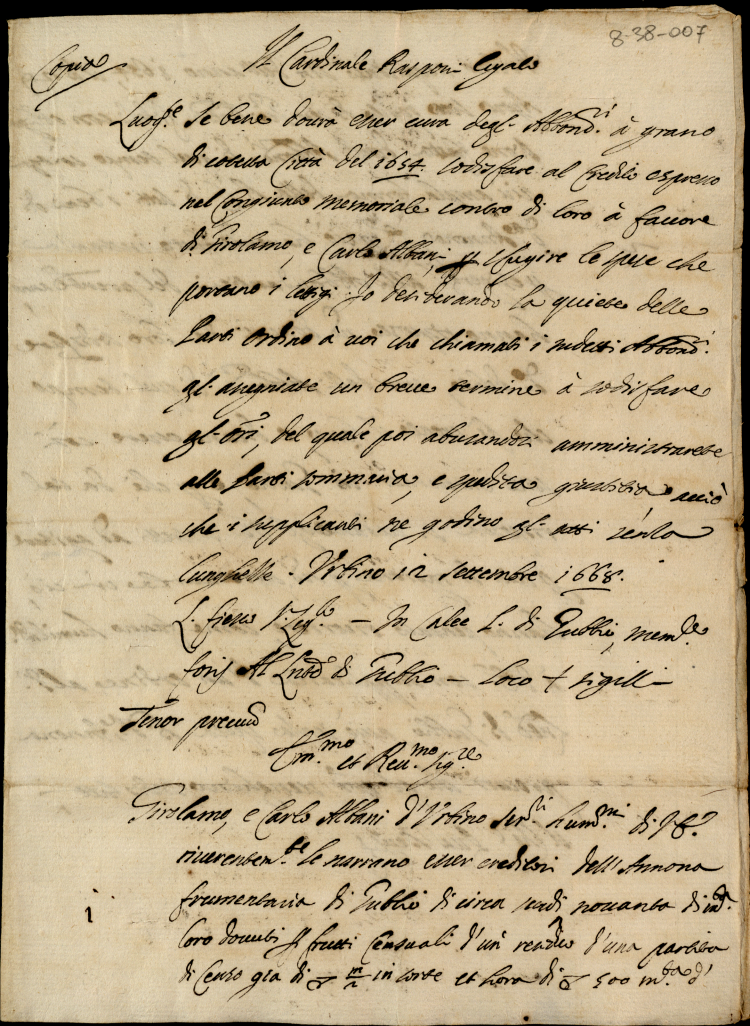 8-38-007
Copia
Il Cardinale Rasponi legato
Luog.te se bene dourà esser cura degl' Abbond.ri à grano
di cotesta Città del 1654. sodisfare al Credito espresso
nel Congiunto memoriale contro di loro à fauore
di Girolamo, e Carlo Albani, sfugire le spese che
portano i litigi. Io desiderando la quiete delle
Parti ordino à voi che chiamati i sudetti Abbond.ri
gl' assegniate un breue termine à sodisfare
gl' Ori, del quale poi abusandosi amministrarete
alle Parti sommaria, e spedita giustitia acciò
che i supplicanti ne godino gl' atti senza
lunghezze. Urbino 12 settembre 1668.
L. — In Calce L. di Gubbio,
foris Al di Gubbio — Loco + sigilli —
Tenor
Em.mo et Reu.mo Sig.re
Girolamo, e Carlo Albani d'Urbino ser.ri hum.mi di V. E.
riuerentem.te le narrano esser creditori dell' Annona
frumentaria di Gubbio di circa scudi nouanta di m.ta
loro douuti frutti Censuali d'un d'una partita
di Censo già di in sorte et hora di 500 m.ta d'
1